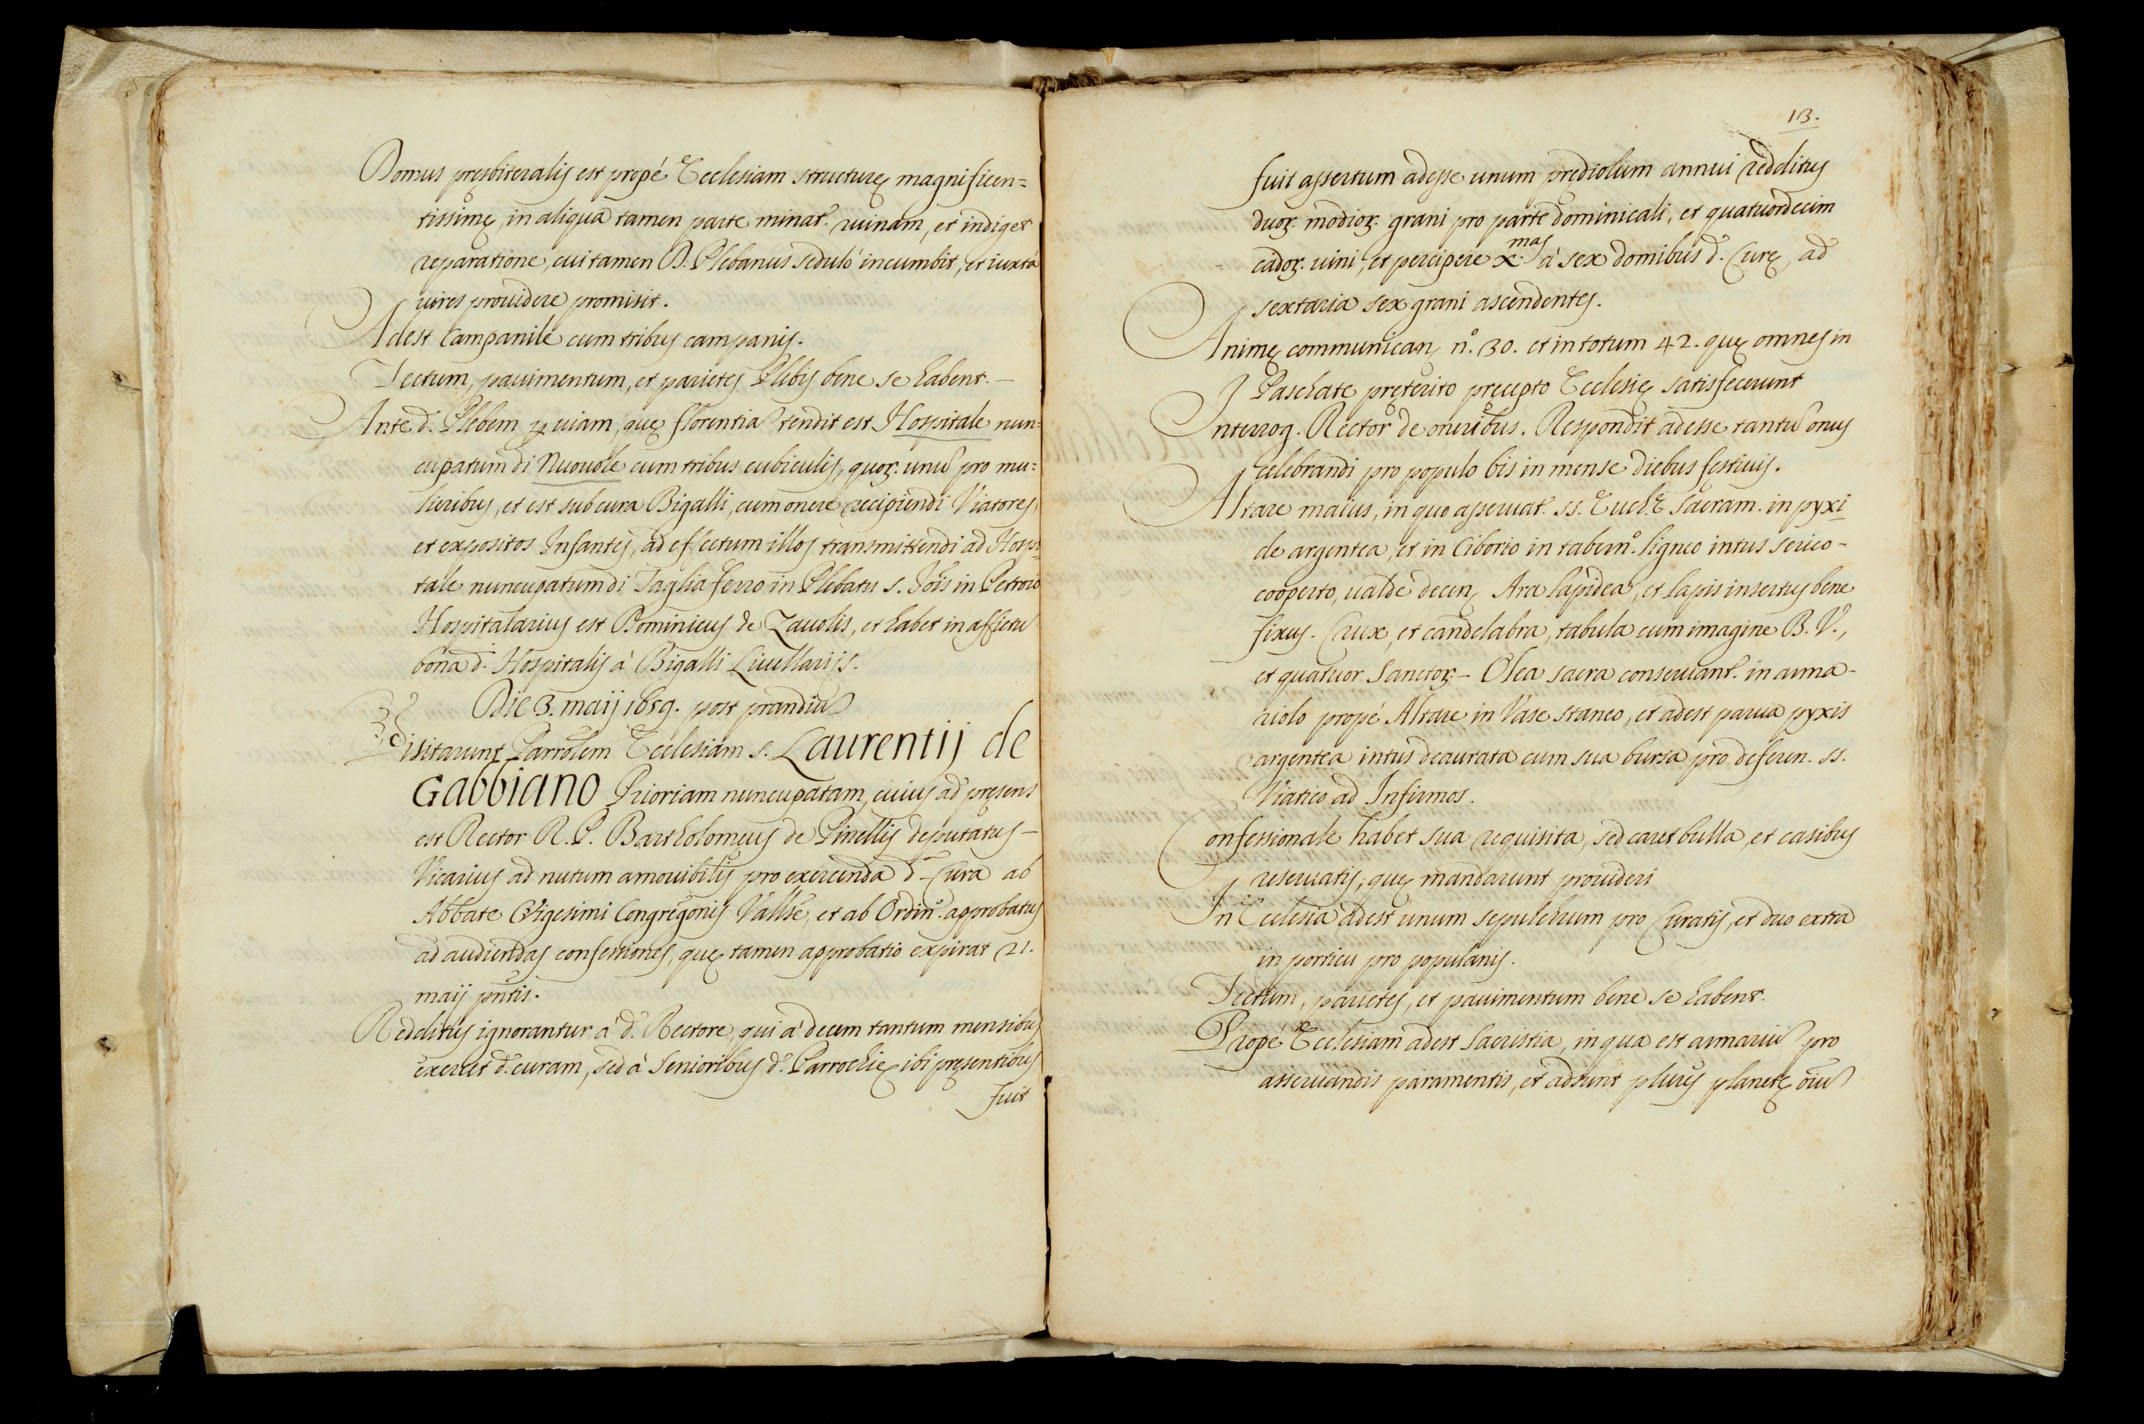 Domus presbiteralis est propé Ecclesiam structurę magnificen=
tissimę, in aliqua tamen parte minat.r ruinam, et indiget
reparatione, cui tamen D. Plebanus seduló incumbit, et iuxta
uires prouidere promisit.
Adest Campanile cum tribus campanis.
Tectum, pauimentum, et parietes Plebis bene se habent. –
Ante d. Plebem p uiam, quę florentia tendit est Hospitale nun=
cupatum di Nuouole cum tribus cubiculis, quoꝝ unu pro mu=
lieribus, et est sub cura Bigalli, cum onere recipiendi Viatores,
et expositos Infantes, ad effectum illos transmittendi ad Hospi
tale nuncupatum di Tagliaferro in Plebatu s. Jois in Petroio
Hospitalarius est Dominicus de Zauolis, et habet in affictu
bona d. Hospitalis á Bigalli Liuellarijs.
Die 3. maij 1659. post prandiu
Visitarunt Parrolem Ecclesiam s. Laurentij de
Gabbiano Prioriam nuncupatam, cuius ad pręsens
est Rector R. P. Bartholomeus de Pinellis deputatus –
Vicarius ad nutum amouibilis pro exercenda d. Cura ab
Abbate Gigesimi Congregonis Vallisę, et ab Ordin.o approbatus
ad audiendas confessiones, quę tamen approbatio expirat 21.
maij pntis.
Redditus ignorantur á d. Rectore, qui á decem tantum mensibus
exercet d. curam, sed á Senioribus d. Parrochię ibi pręsentibus
fuit
13.
fuit assertum adesse unum prędiolum annui redditus
duoꝝ modioꝝ grani pro parte dominicali, et quatuordecim
cadoꝝ uini, et percipere x.mas á sex domibus d. Curę, ad
sextaria sex grani ascendentes.
Animę communican, n.o 30. et in totum 42. quę omnes in
Paschate pręterito precepto Ecclesię satisfecerunt
Interrog. Rector de oneribus. Respondit adesse tantu onus
celebrandi pro populo bis in mense diebus festiuis.
Altare maius, in quo asseruat.r ss. Euch.ę Sacram. in pyxi
de argentea, et in Ciborio in tabern.o ligneo intus serico –
cooperto, ualde decen, Ara lapidea, et lapis insertus bene
fixus. Crux, et candelabra, tabula cum imagine B. V.,
et quatuor Sanctoꝝ – Olea sacra conseruant.r in arma-
riolo propé Altare in Vase staneo, et adest parua pyxis
argentea intus deaurata cum sua bursa pro deferen. ss.
Viatico ad Infirmos.
Confessionale habet sua requisita, sed caret bulla, et casibus
reseruatis, quę mandarunt prouideri
In Ecclesia adest unum sepulchrum pro Curatis, et duo extra
in porticu pro popularis.
Tectum, parietes, et pauimentum bene se habent.
Propé Ecclesiam adest Sacristia, in qua est armariu pro
asseruandis paramentis, et adsunt plures planetę oiu